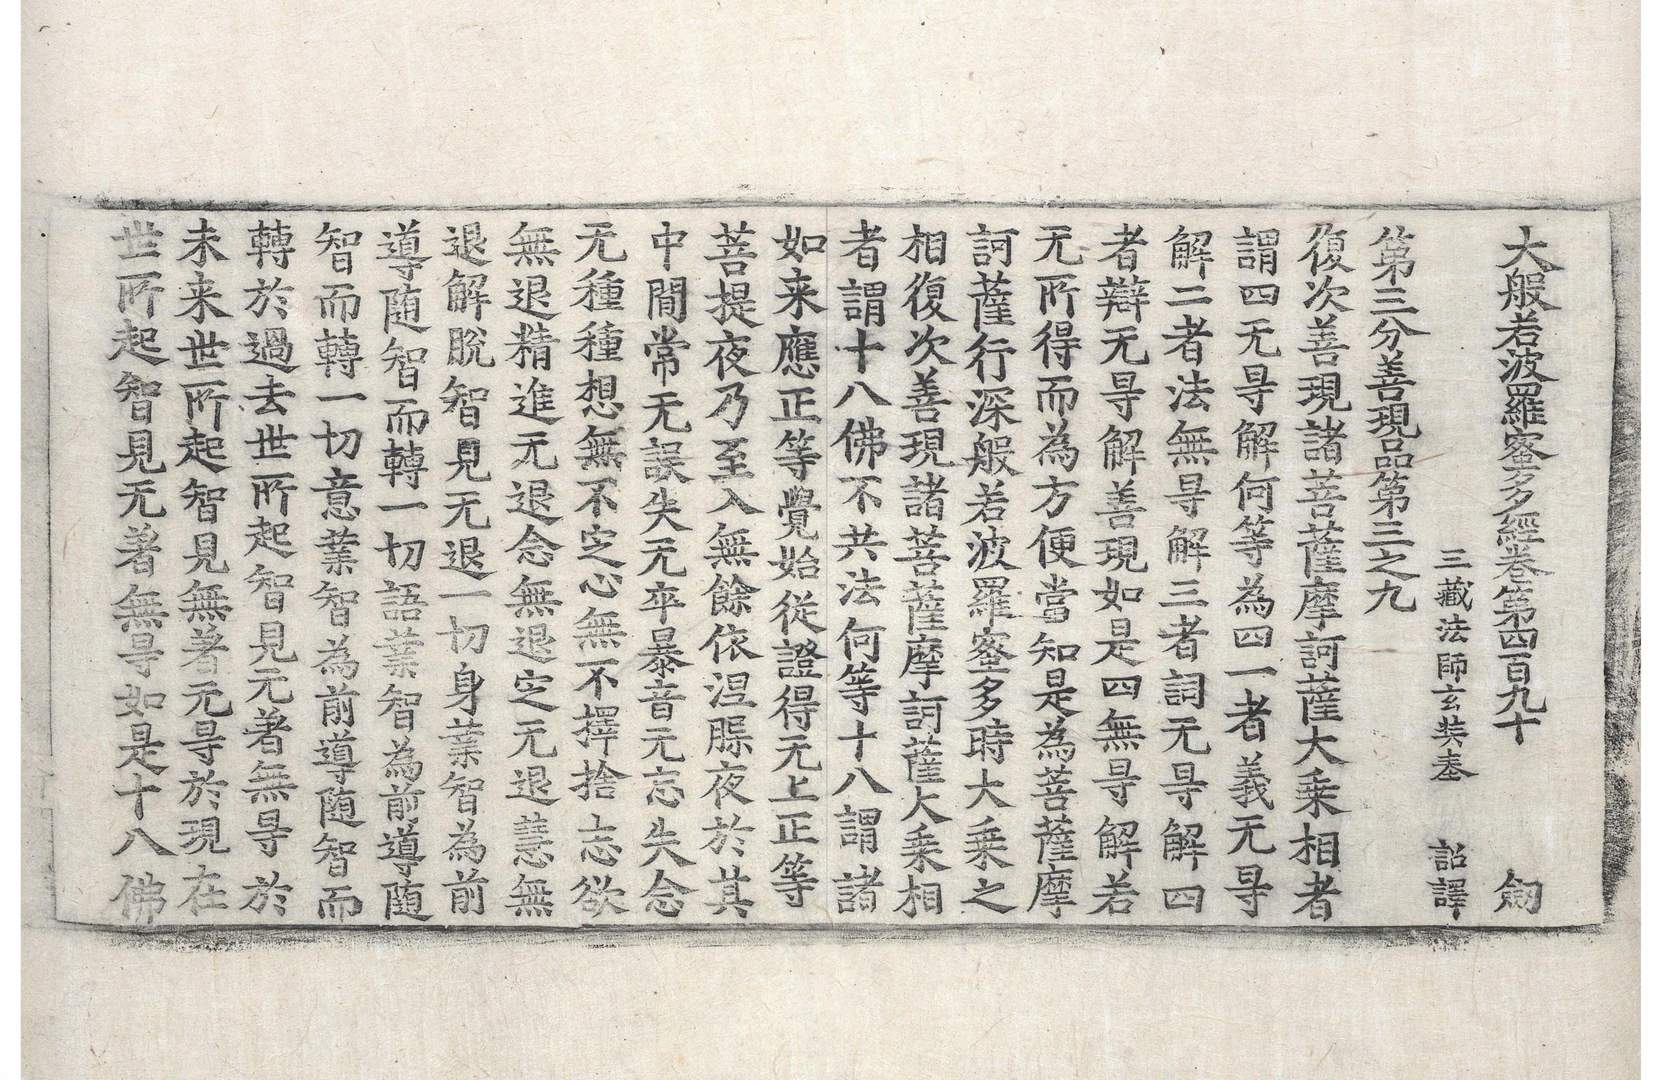 大般若波羅蜜多經卷第四百九十　劒
三藏法師玄奘奉　詔譯
第三分善現品第三之九
復次善現諸菩薩摩訶薩大乘相者
謂四无㝵解何等為四一者義无㝵
解二者法無㝵解三者詞无㝵解四
者辯无㝵解善現如是四無㝵解若
无所得而為方便當知是為菩薩摩
訶薩行深般若波羅蜜多時大乘之
相復次善現諸菩薩摩訶薩大乘相
者謂十八佛不共法何等十八謂諸
如来應正等覺始從證得无上正等
菩提夜乃至入無餘依涅縣夜於其
中間常无誤失无卒暴音无忘失念
无種種想無不定心無不擇捨志欲
無退精進无退念無退定无退慧無
退解脫智見无退一切身業智為前
導随智而轉一切語業智為前導随
智而轉一切意業智為前導随智而
轉於過去世所起智見无著無㝵於
未来世所起智見無著无㝵於現在
世所起智見无著無㝵如是十八佛